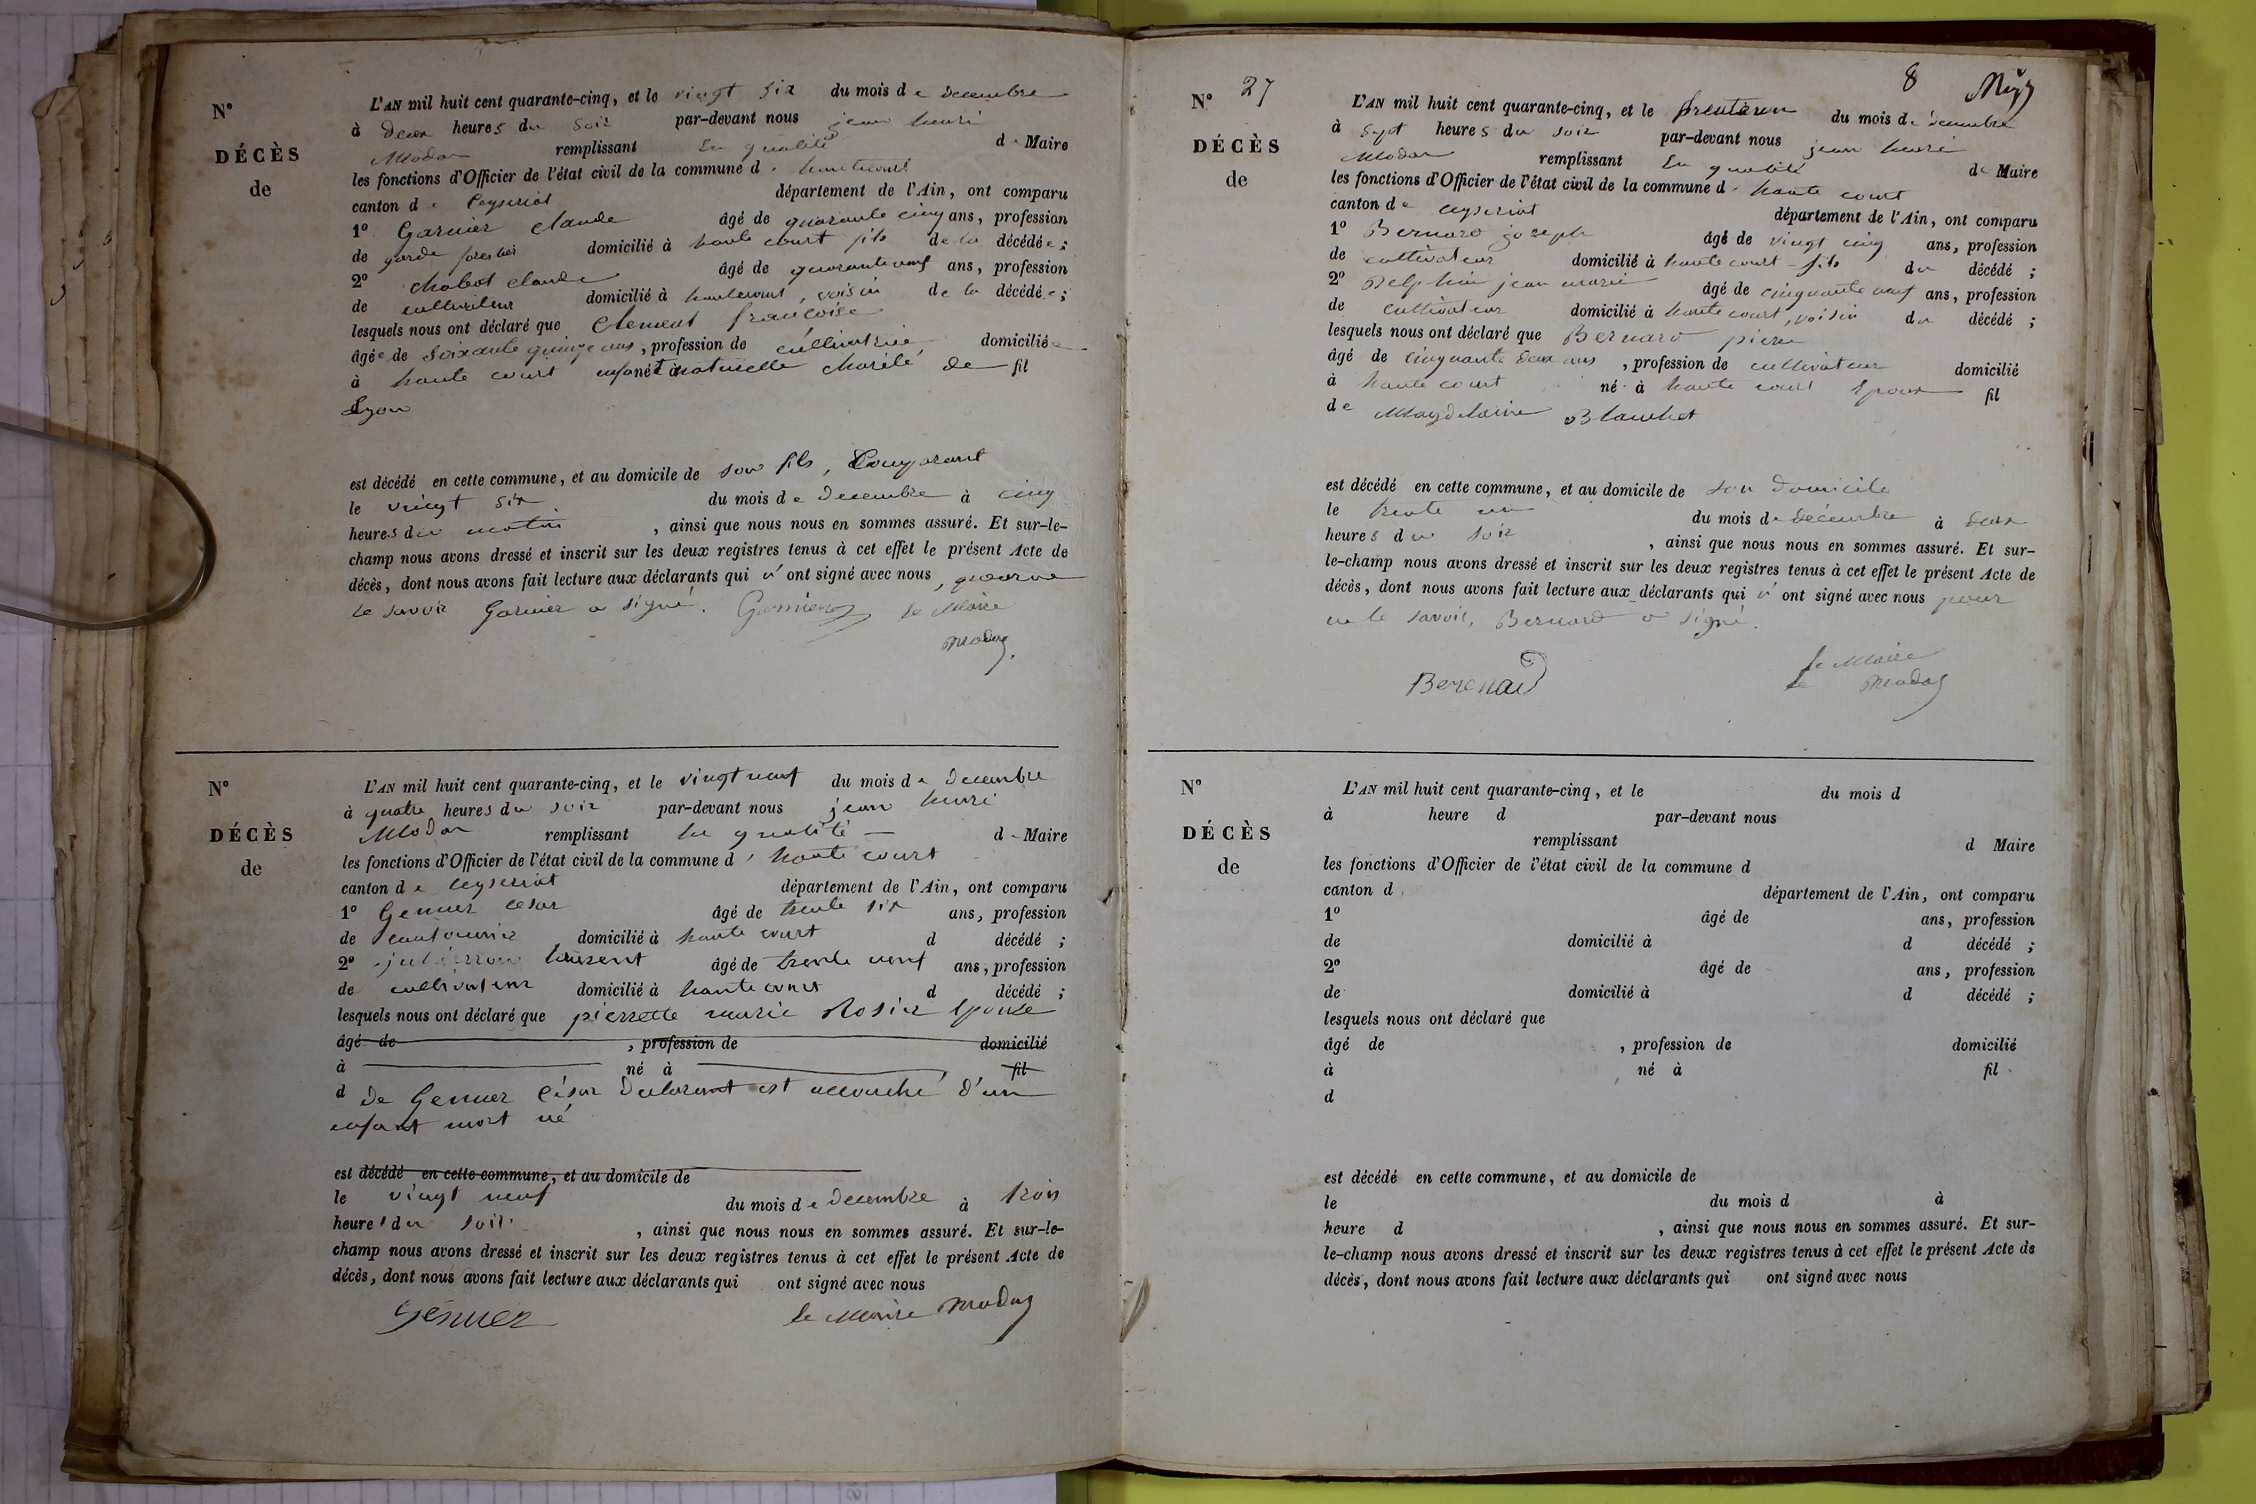 N°
DÉCÈS
de
L'AN mil huit cent quarante-cinq, et le vingt six du mois de decembre
à deux heures du soir par-devant nous jean henri
Modas remplissant en qualité de Maire
les fonctions d'Officier de l'état civil de la commune d hautecourt
canton de Ceyseriat département de l'Ain, ont comparu
1° Garnier claude âgé de quarante cinq ans, profession
de garde forestier domicilié à haute court fils de la décédée;
2° chabot claude âgé de quarante neuf ans, profession
de cultivateur domicilié à hautecourt, voisin de la décédée;
lesquels nous ont déclaré que Clement françoise
âgée de soixante quinze ans, profession de cultivatrice domiciliée
à haute court enfant naturelle charité de fil
Lyon
est décédé en cette commune, et au domicile de son fils, Comparant
le vingt six du mois de decembre à cinq
heures du matin, ainsi que nous nous en sommes assuré. Et sur-le-
champ nous avons dressé et inscrit sur les deux registres tenus à cet effet le présent Acte de
décès, dont nous avons fait lecture aux déclarants qui n'ont signé avec nous, pour ne
le savoir Garnier a signé. Garnier le Maire
Modas
N°
DÉCÈS
de
L'AN mil huit cent quarante-cinq, et le vingt neuf du mois de decembre
à quatre heures du soir par-devant nous jean henri
Modas remplissant en qualité de Maire
les fonctions d'Officier de l'état civil de la commune d haute court
canton de ceyseriat département de l'Ain, ont comparu
1° Genuer cesar âgé de trente six ans, profession
de cantonnier domicilié à haute court d décédé ;
2° laurent âgé de trente neuf ans, profession
de cultivateur domicilié à haute court d décédé ;
lesquels nous ont déclaré que pierrette marie Rosier épouse
âgé de , profession de domicilié
à né à fil
d de Genuer César declarant est accouché d'un
enfant mort né
est décédé en cette commune, et au domicile de
le vingt neuf du mois de decembre à trois
heures du soir, ainsi que nous nous en sommes assuré. Et sur-le-
champ nous avons dressé et inscrit sur les deux registres tenus à cet effet le présent Acte de
décès, dont nous avons fait lecture aux déclarants qui ont signé avec nous
Génuer le Maire Modas
8
N° 27
DÉCÈS
de
L'AN mil huit cent quarante-cinq, et le trenteun du mois de decembre
à sept heures du soir par-devant nous jean henri
Modas remplissant en qualité de Maire
les fonctions d'Officier de l'état civil de la commune d haute court
canton de ceyseriat département de l'Ain, ont comparu
1° Bernard joseph âgé de vingt cinq ans, profession
de cultivateur domicilié à haute court fils du décédé ;
2° Delphin jean marie âgé de cinquante neuf ans, profession
de cultivateur domicilié à haute court, voisin du décédé ;
lesquels nous ont déclaré que Bernard pierre
âgé de cinquante deux ans, profession de cultivateur domicilié
à haute court né à haute court époux fil
de Magdelaine Blanchet
est décédé en cette commune, et au domicile de son domicile
le trente un du mois de decembre à deux
heures du soir, ainsi que nous nous en sommes assuré. Et sur-
le-champ nous avons dressé et inscrit sur les deux registres tenus à cet effet le présent Acte de
décès, dont nous avons fait lecture aux déclarants qui n'ont signé avec nous pour
ne le savoir, Bernard a signé.
Berenard le Maire
Modas
N°
DÉCÈS
de
L'AN mil huit cent quarante-cinq, et le du mois d
à heure d par-devant nous
remplissant d Maire
les fonctions d'Officier de l'état civil de la commune d
canton d département de l'Ain, ont comparu
1° âgé de ans, profession
de domicilié à d décédé ;
2° âgé de ans, profession
de domicilié à d décédé ;
lesquels nous ont déclaré que
âgé de , profession de domicilié
à né à fil
d
est décédé en cette commune, et au domicile de
le du mois d à
heure d , ainsi que nous nous en sommes assuré. Et sur-
le-champ nous avons dressé et inscrit sur les deux registres tenus à cet effet le présent Acte de
décès, dont nous avons fait lecture aux déclarants qui ont signé avec nous